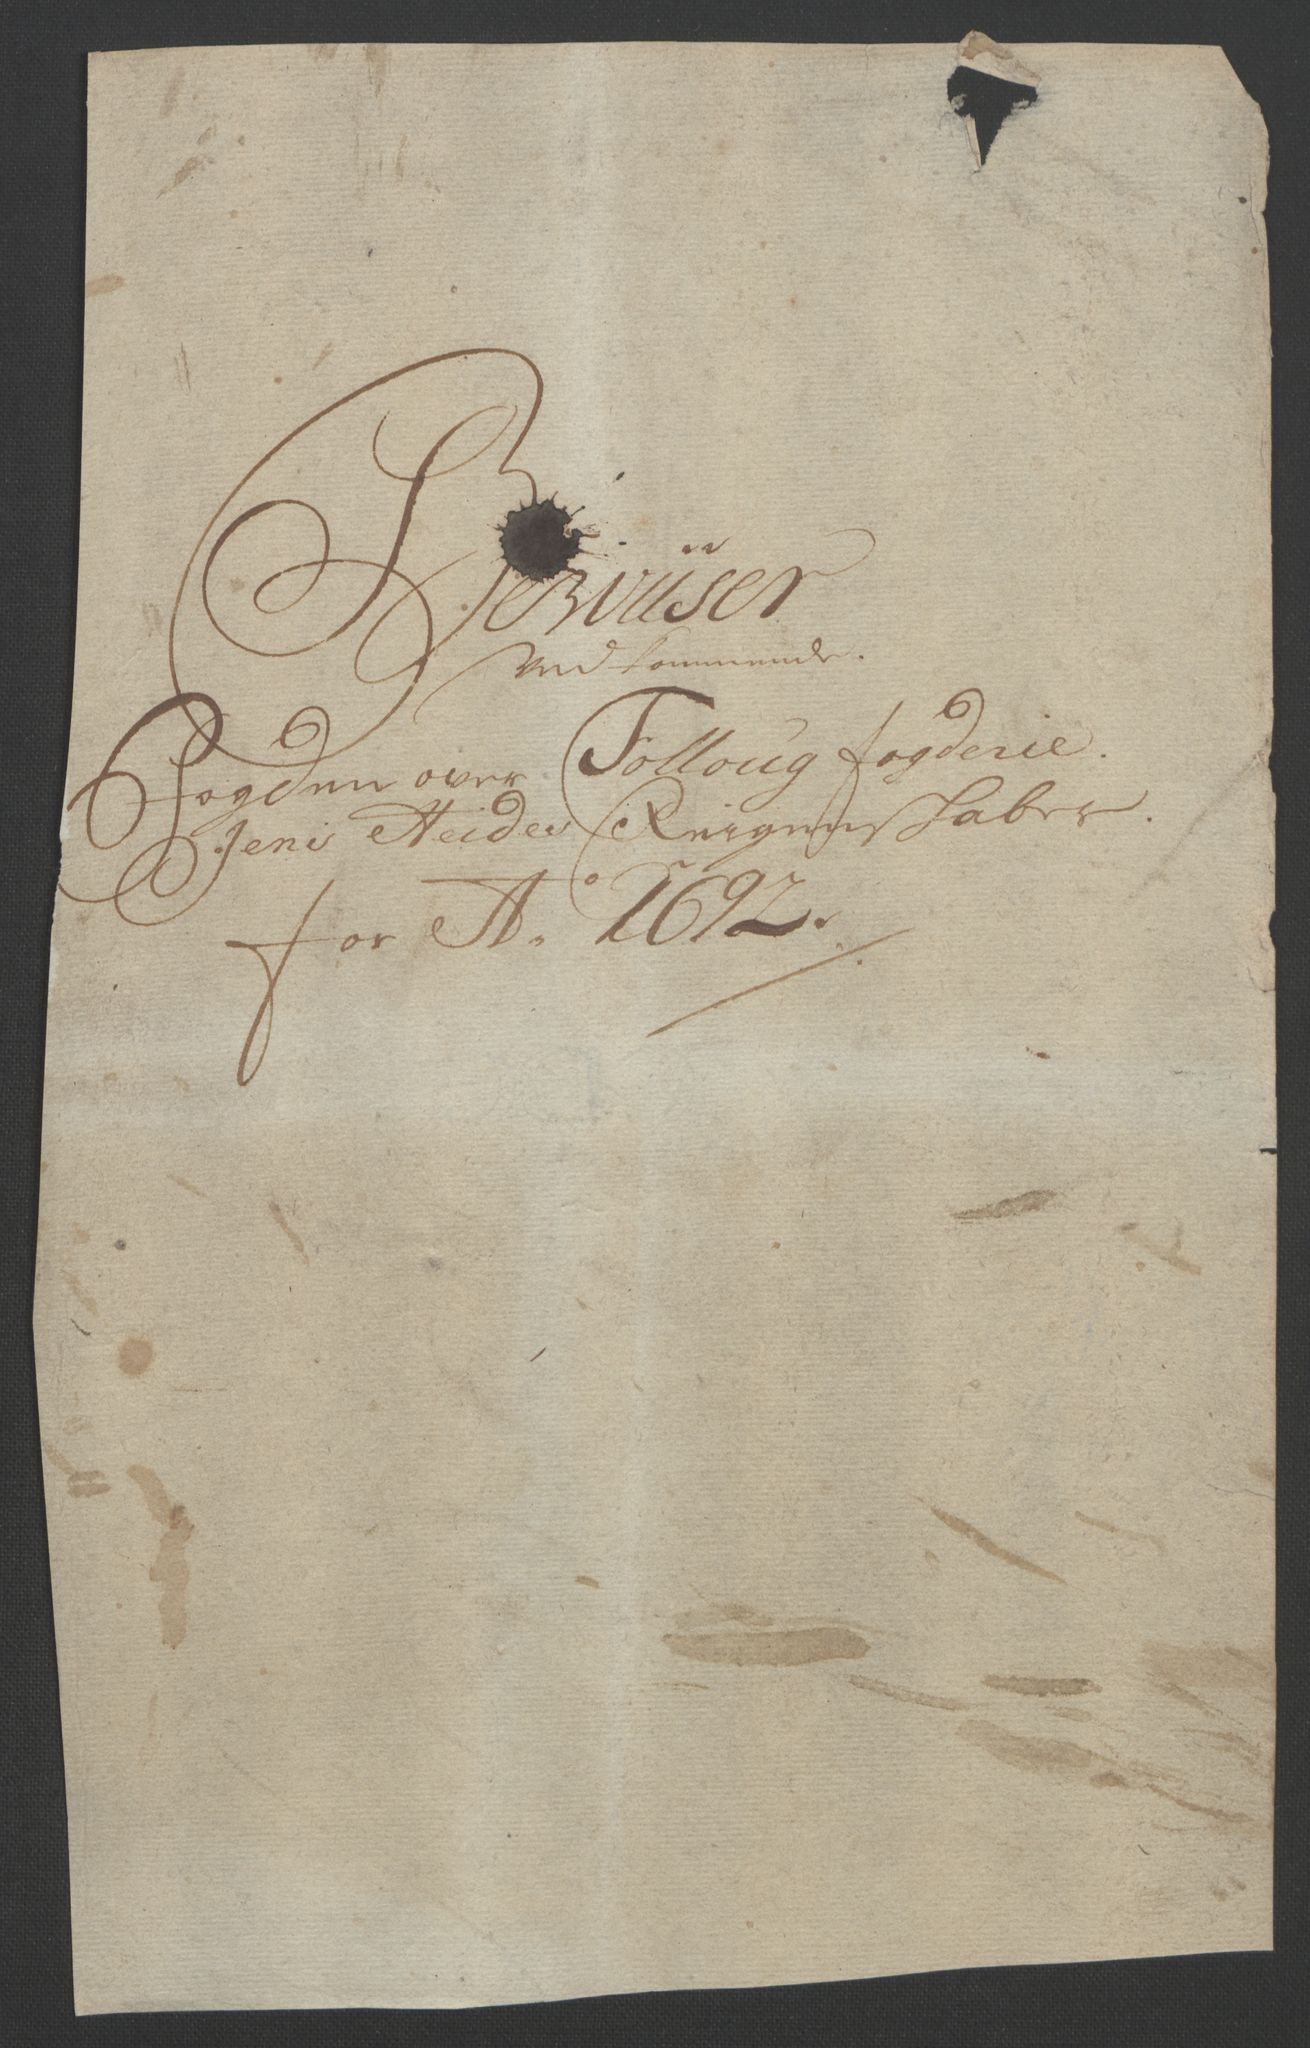 Bewüser
Vedkommende.
Fogden over Folloug fogderie.
Jens Heides Reigenskaber.
for Ao. 1692.